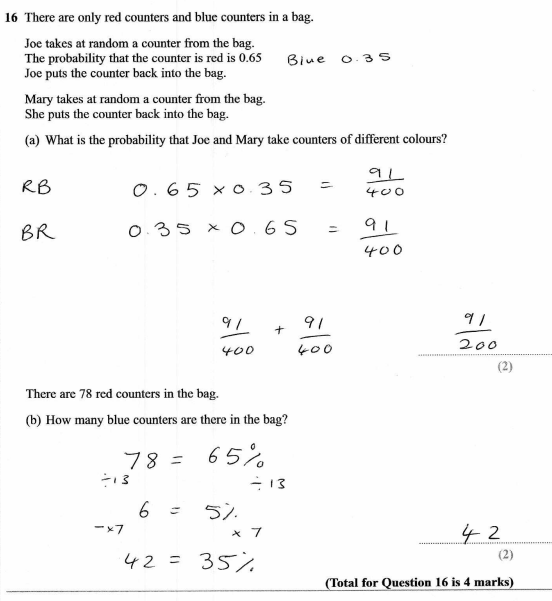 16 There are only red counters and blue counters in a bag.
Joe takes at random a counter from the bag.
The probability that the counter is red is 0.65 Blue 0.35
Joe puts the counter back into the bag.
Mary takes at random a counter from the bag.
She puts the counter back into the bag.
(a) What is the probability that Joe and Mary take counters of different colours?
RB 0.65 × 0.35 = 91/400
BR 0.35 × 0.65 = 91/400
91/400 + 91/400 91/200
(2)
There are 78 red counters in the bag.
(b) How many blue counters are there in the bag?
78 = 65%
÷13 ÷13
6 = 5%
×7 ×7
42
42 = 35%
(2)
(Total for Question 16 is 4 marks)